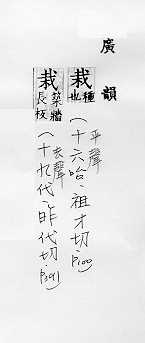 廣韻
栽 種也 平聲(十六咍、祖才切、P100
栽 築牆長板 去聲(十九代、昨代切、P391